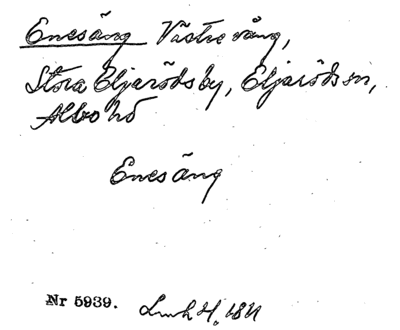 Enesäng Västrevång,
Stora Eljarödsby, Eljaröds sn,
Albo hd
Enesäng
Nr 5939. Lmh H. 1811